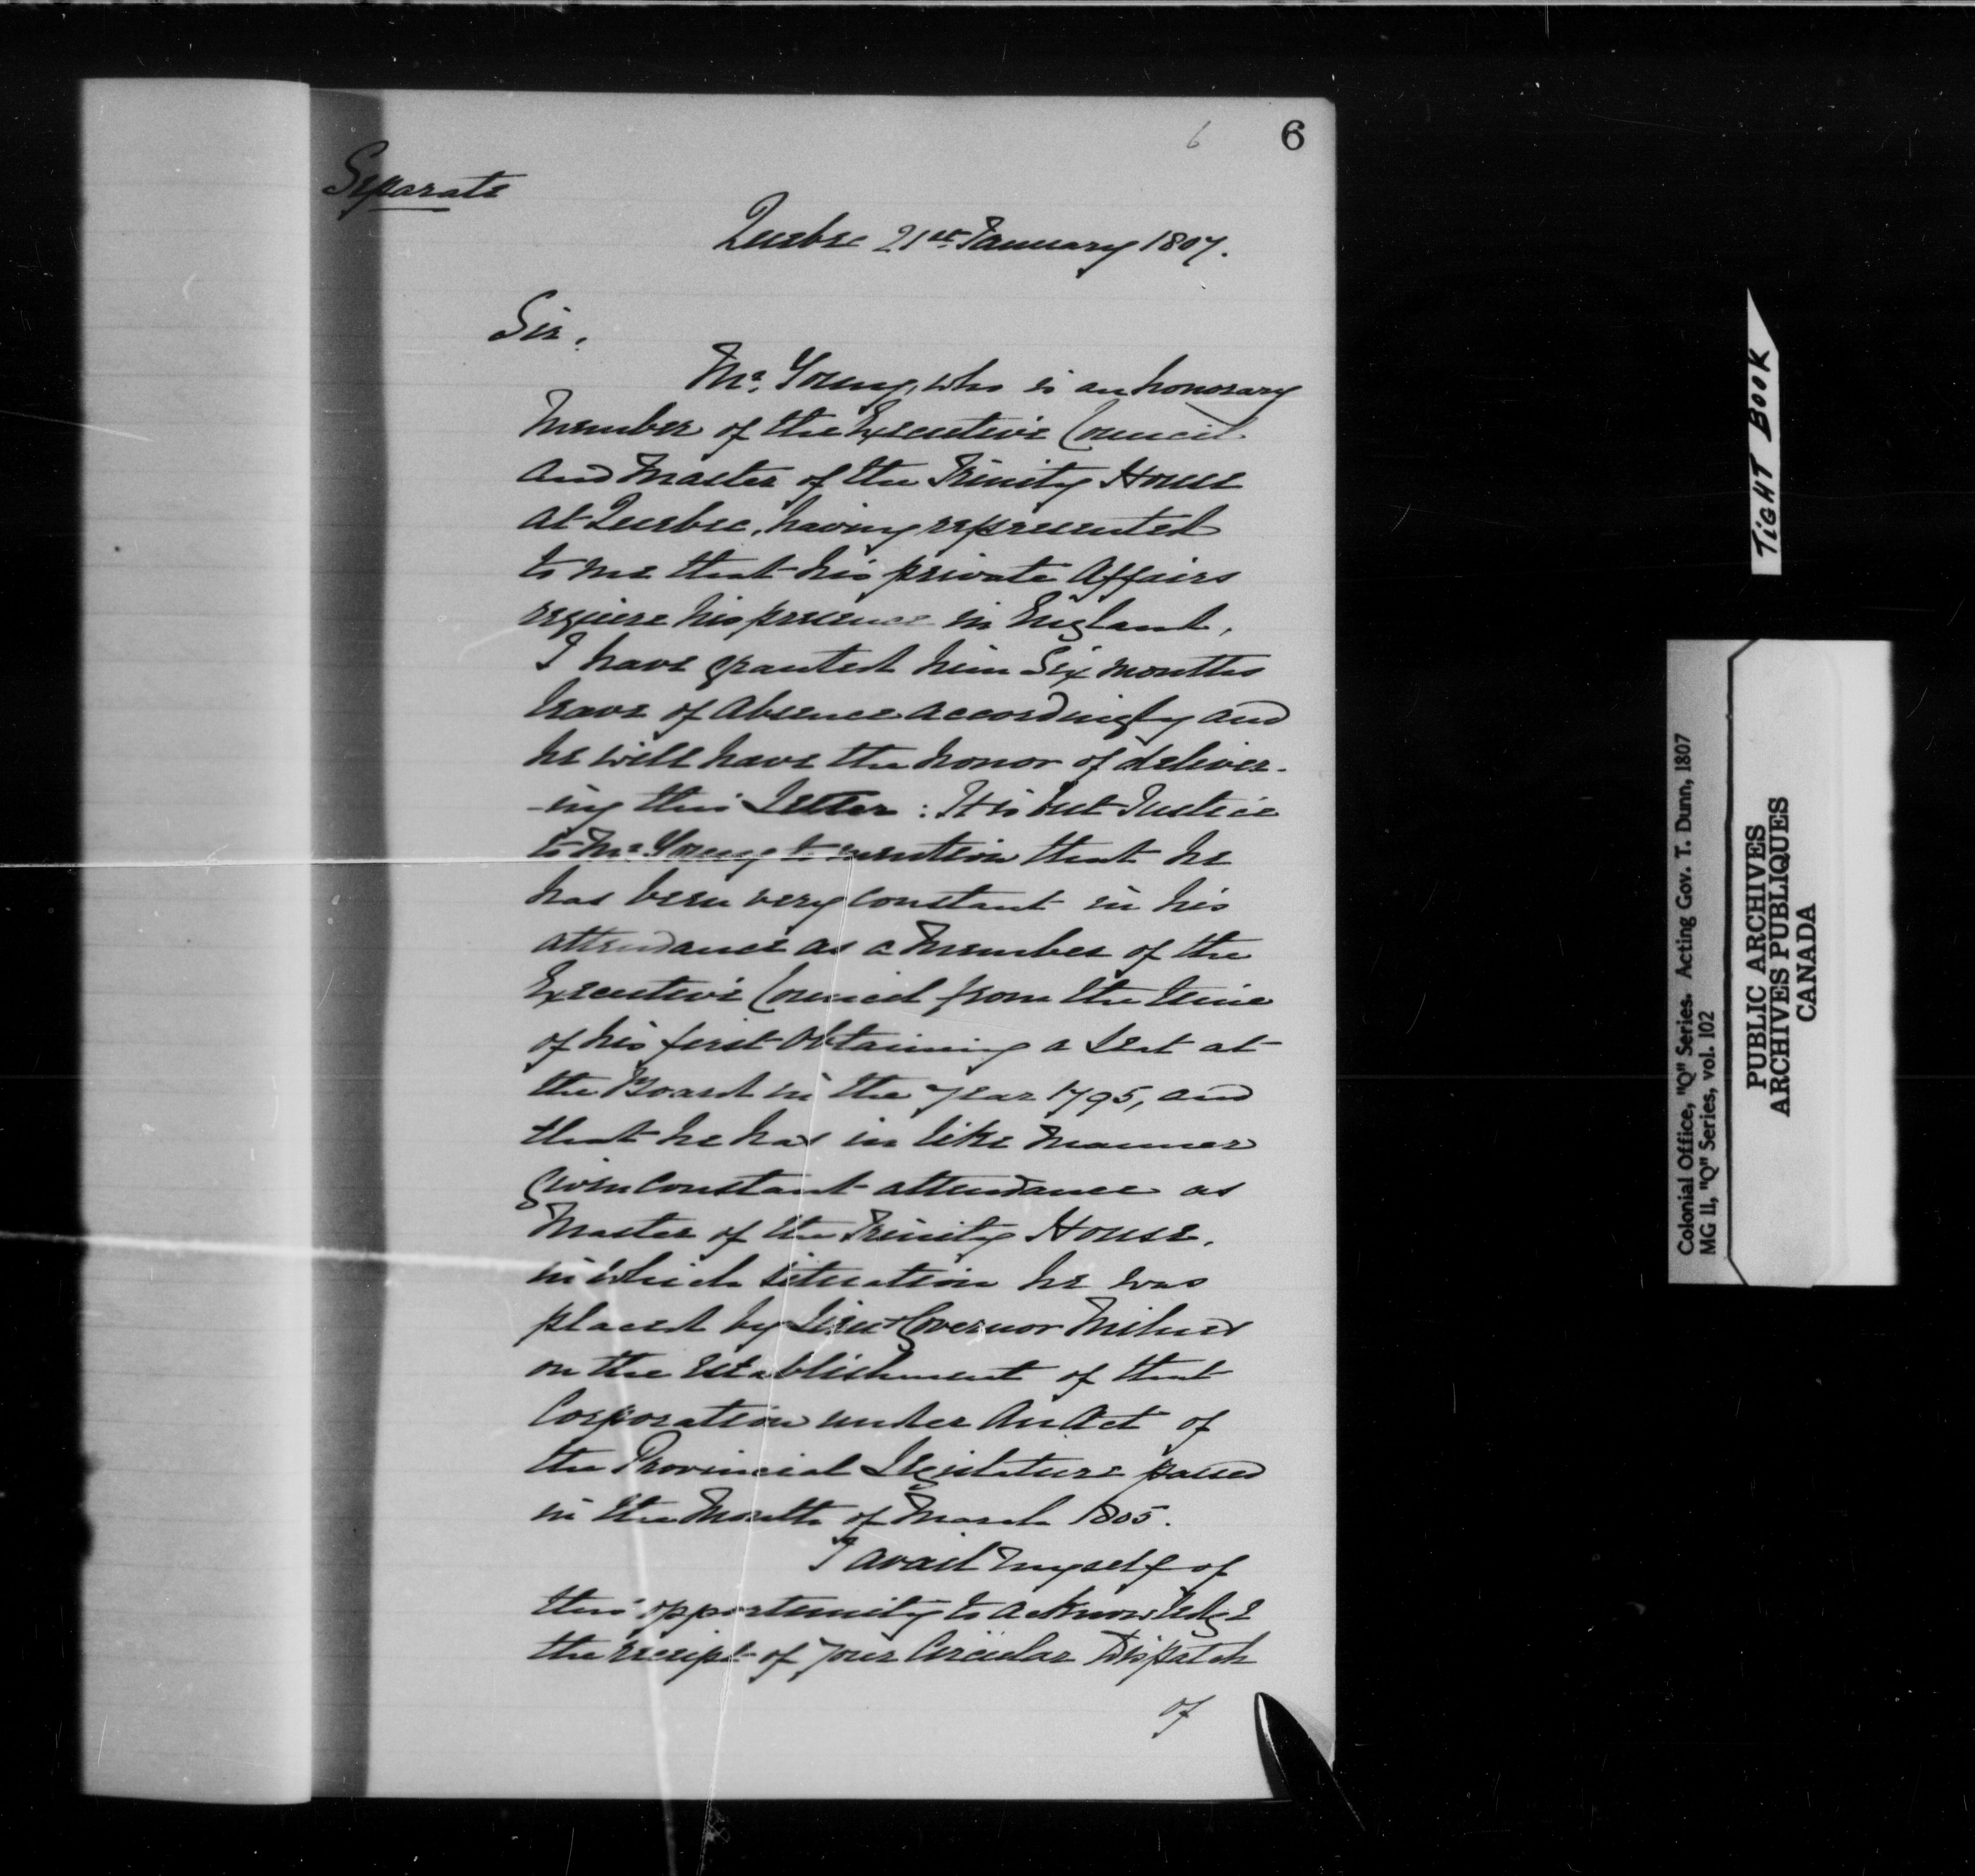 6
6
Separate
Quebec 21st January 1807.
Sir,
Mr. Young, who is an honorary
Member of the Executive Council
and Master of the Trinity House
at Quebec, having represented
to me that his private Affairs
require his presence in England,
I have granted him Six months
leave of absence accordingly and
he will have the honor of deliver-
-ing this Letter: It is but Justice
to Mr. Young to mention that he
has been very constant in his
attendance as a Member of the
Executive Council from the time
of his first obtaining a Seat at
the Board in the year 1795, and
that he has in like manner
given constant attendance as
Master of the Trinity House,
in which situation he was
placed by Lieut Governor Milnes
on the establishment of that
Corporation under an Act of
the Provincial Legislature passed
in the Month of March 1805.
I avail myself of
this opportunity to acknowledge
the receipt of your Circular Dispatch
of
TiGHT BOOK
Colonial Office, "Q" Series. Acting Gov. T. Dunn, 1807
MG 11, "Q" Series, vol. 102
PUBLIC ARCHIVES
ARCHIVES PUBLIQUES
CANADA